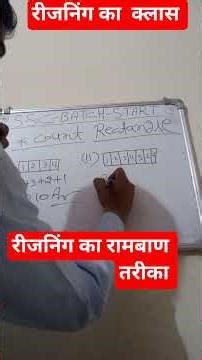 रीजनिंग का क्लास
SSC-BATCH-START
* Count Rectangle
1 2 3 4 (ii)
+3+2+1
10 Ans
रीजनिंग का रामबाण
तरीका